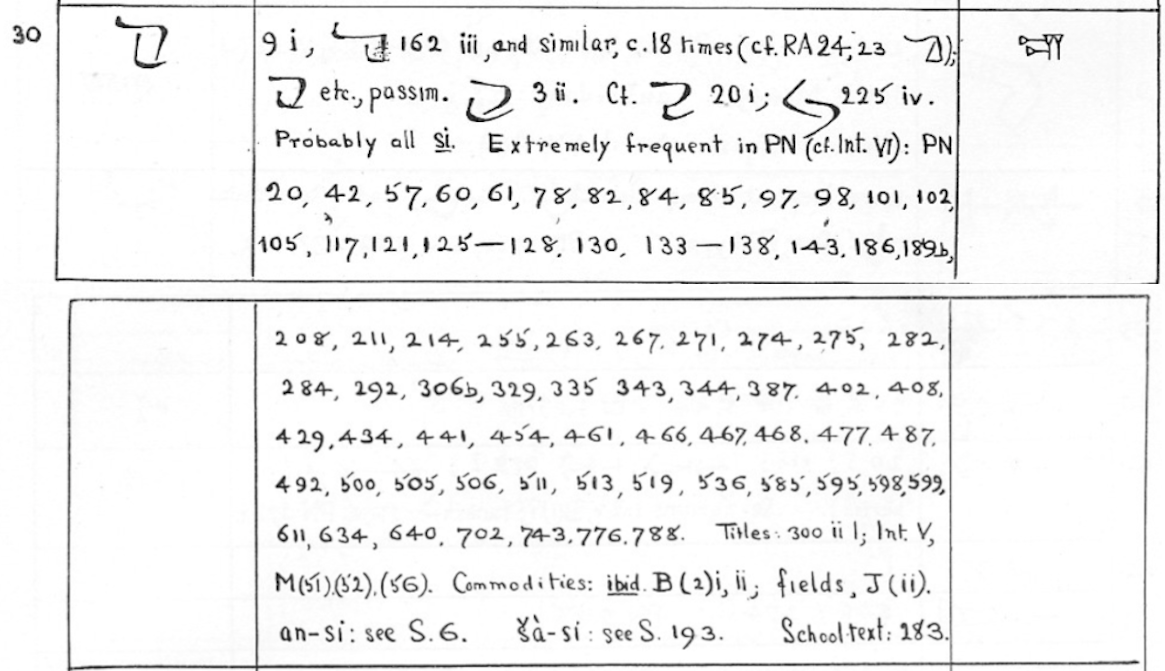 30
9 i, 162 iii, and similar, c. 18 times (cf. RA 24, 23 );
etc., passim. 3 ii. Cf. 20 i; 225 iv.
Probably all si. Extremely frequent in PN (cf. Int. VI): PN
20, 42, 57, 60, 61, 78, 82, 84, 85, 97, 98, 101, 102,
105, 117, 121, 125—128, 130, 133—138, 143, 186, 189b,
208, 211, 214, 255, 263, 267, 271, 274, 275, 282,
284, 292, 306b, 329, 335 343, 344, 387. 402, 408,
429, 434, 441, 454, 461, 466, 467, 468. 477. 487,
492, 500, 505, 506, 511, 513, 519, 536, 585, 595, 598, 599,
611, 634, 640, 702, 743, 776, 788. Titles: 300 ii 1; Int. V,
M(51),(52),(56). Commodities: ibid. B(2)i, ii; fields, J(ii).
an-si: see S. 6. šà-si: see S. 193. School text: 283.